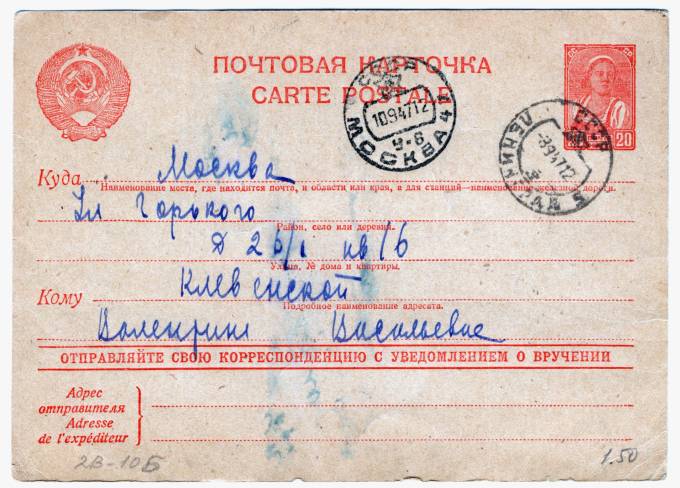 ПОЧТОВАЯ КАРТОЧКА
CARTE POSTALE
СССР
10 9 47 12
У-6
МОСКВА 4
СССР
-8 9 47 12
ЛЕНИНГРАД 5
20
Куда Москва
Наименование места, где находится почта, и области или края, а для станций—наименование железной дороги.
Ул Горького
Район, село или деревня.
Д 26/1 кв 16
Улица, № дома и квартиры.
Клевенской
Кому
Подробное наименование адресата.
Валентине Васильевне
ОТПРАВЛЯЙТЕ СВОЮ КОРРЕСПОНДЕНЦИЮ С УВЕДОМЛЕНИЕМ О ВРУЧЕНИИ
Адрес
отправителя
Adresse
de l'expéditeur
2В-10Б
1.50